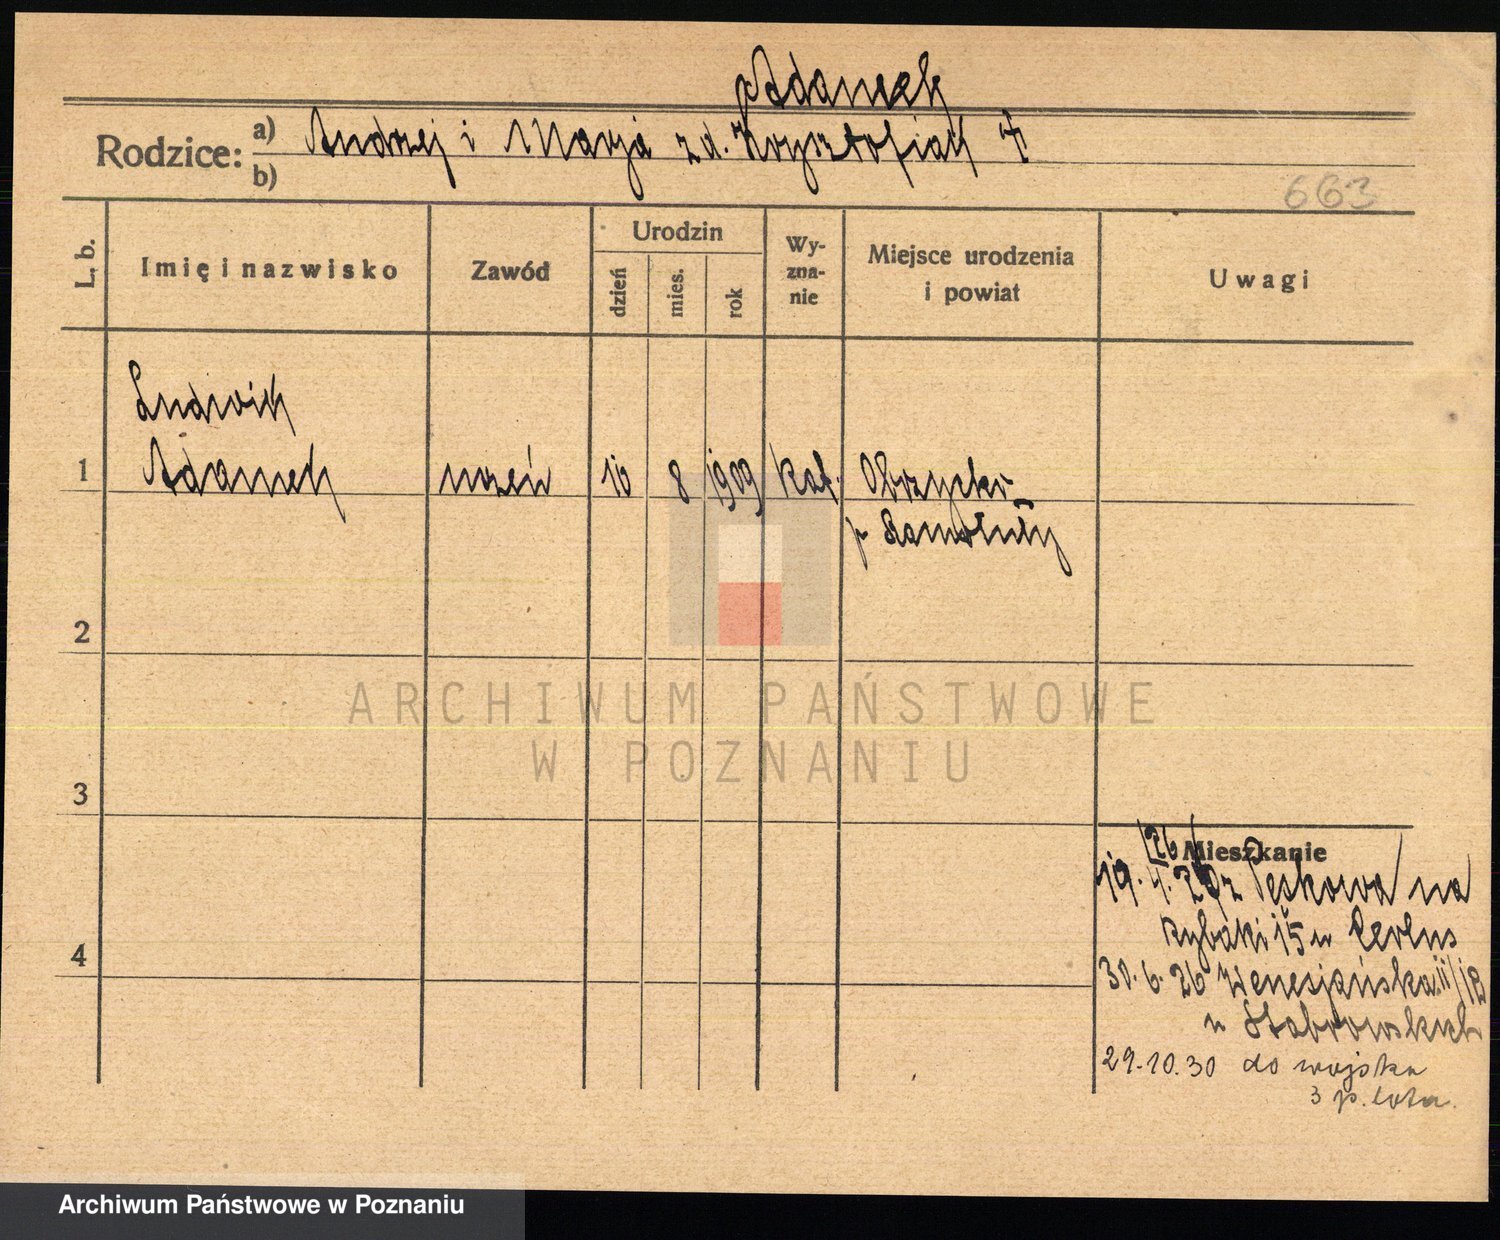 Adamek
Rodzice: a) Andrzej i Marja z d. Krzysztofiak
b)
663
L. b.
Imię i nazwisko
Zawód
Urodzin
dzień
mies.
rok
Wy-
zna-
nie
Miejsce urodzenia
i powiat
Uwagi
Ludwik
1 Adamek uczeń 10 8 1909 kat. Obrzycko
p Szamotuły
2
ARCHIWUM PAŃSTWOWE
W POZNANIU
3
Mieszkanie
19. 4. 26 z Peskowa na
Rybaki 15 u
4
30. 6. 26 Wenecjańska
u Dąbrowskich
29.10.30 do wojska
3 p. lotn.
Archiwum Państwowe w Poznaniu